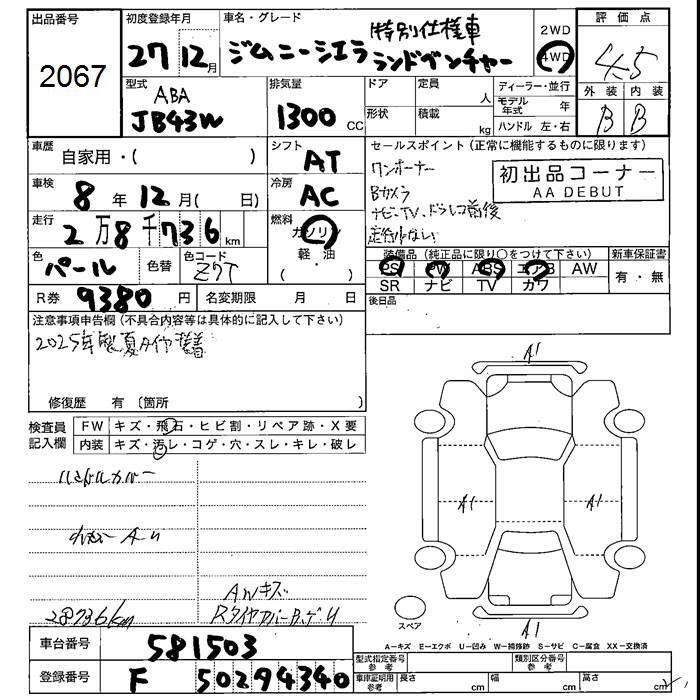 出品番号
2067
初度登録年月
27 12月
車名・グレード
特別仕様車
ジムニーシエラ ランドベンチャー
2WD
4WD
評価点
4.5
外装 内装
B B
型式
ABA
JB43W
排気量
1300 CC
ドア
定員
人
形状
積載
kg
ディーラー・並行
モデル年式 年
ハンドル 左・右
車歴
自家用・( )
シフト
AT
車検
8年12月( 日)
冷房
AC
走行
2万8千736km
燃料
ガソリン
軽・油
色
パール
色替
色コード
Z7T
R券
9380円
名変期限 月 日
セールスポイント (正常に機能するものに限ります)
ワンオーナー
Bカメラ
ナビ、TV、ドラレコ前後
初出品コーナー
AA DEBUT
装備品 (純正品に限り○をつけて下さい)
PS PW ABS エアB AW
SR ナビ TV カワ
新車保証書
有・無
後日品
注意事項申告欄 (不具合内容等は具体的に記入して下さい)
2025年製夏タイヤ装着
修復歴 有 (箇所 )
検査員記入欄
FW キズ・飛石・ヒビ割・リペア跡・X要
内装 キズ・汚レ・コゲ・穴・スレ・キレ・破レ
ハンドルカバー
28736km
AWキズ
A1
A1
A1
A1
スペア
A－キズ E－エクボ U－凹み W－補修跡 S－サビ C－腐食 XX－交換済
車台番号
581503
登録番号
F 50294340
型式指定番号 参考
類別区分番号 参考
車庫証明用 参考
長さ cm
幅 cm
高さ cm